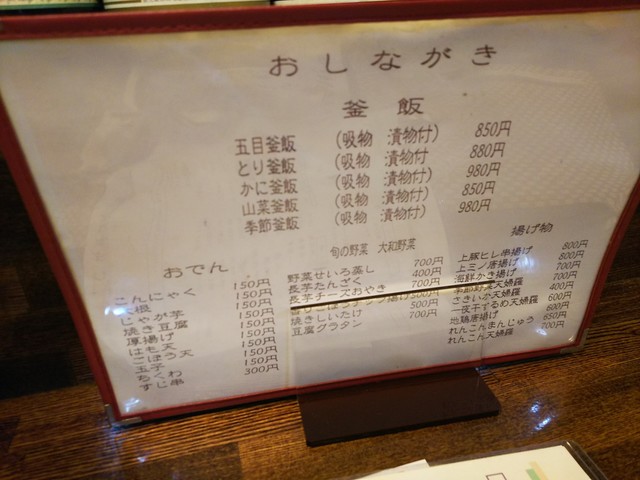 おしながき
釜飯
五目釜飯 (吸物 漬物付) 850円
とり釜飯 (吸物 漬物付 880円
かに釜飯 (吸物 漬物付) 980円
山菜釜飯 (吸物 漬物付) 850円
季節釜飯 (吸物 漬物付) 980円
おでん
こんにゃく 150円
大根 150円
じゃが芋 150円
焼き豆腐 150円
厚揚げ 150円
はも天 150円
ごぼう天 150円
玉子 150円
ちくわ 150円
すじ串 300円
旬の野菜 大和野菜
野菜せいろ蒸し 700円
長芋たんざく 400円
長芋チーズおやき 500円
焼きしいたけ 500円
豆腐グラタン 700円
揚げ物
上豚ヒレ串揚げ 800円
上ミノ唐揚げ 800円
海鮮かき揚げ 700円
季節野菜天婦羅 700円
さきいか天婦羅 400円
一夜干するめ天婦羅 600円
地鶏唐揚げ 600円
れんこんまんじゅう 650円
れんこん天婦羅 700円